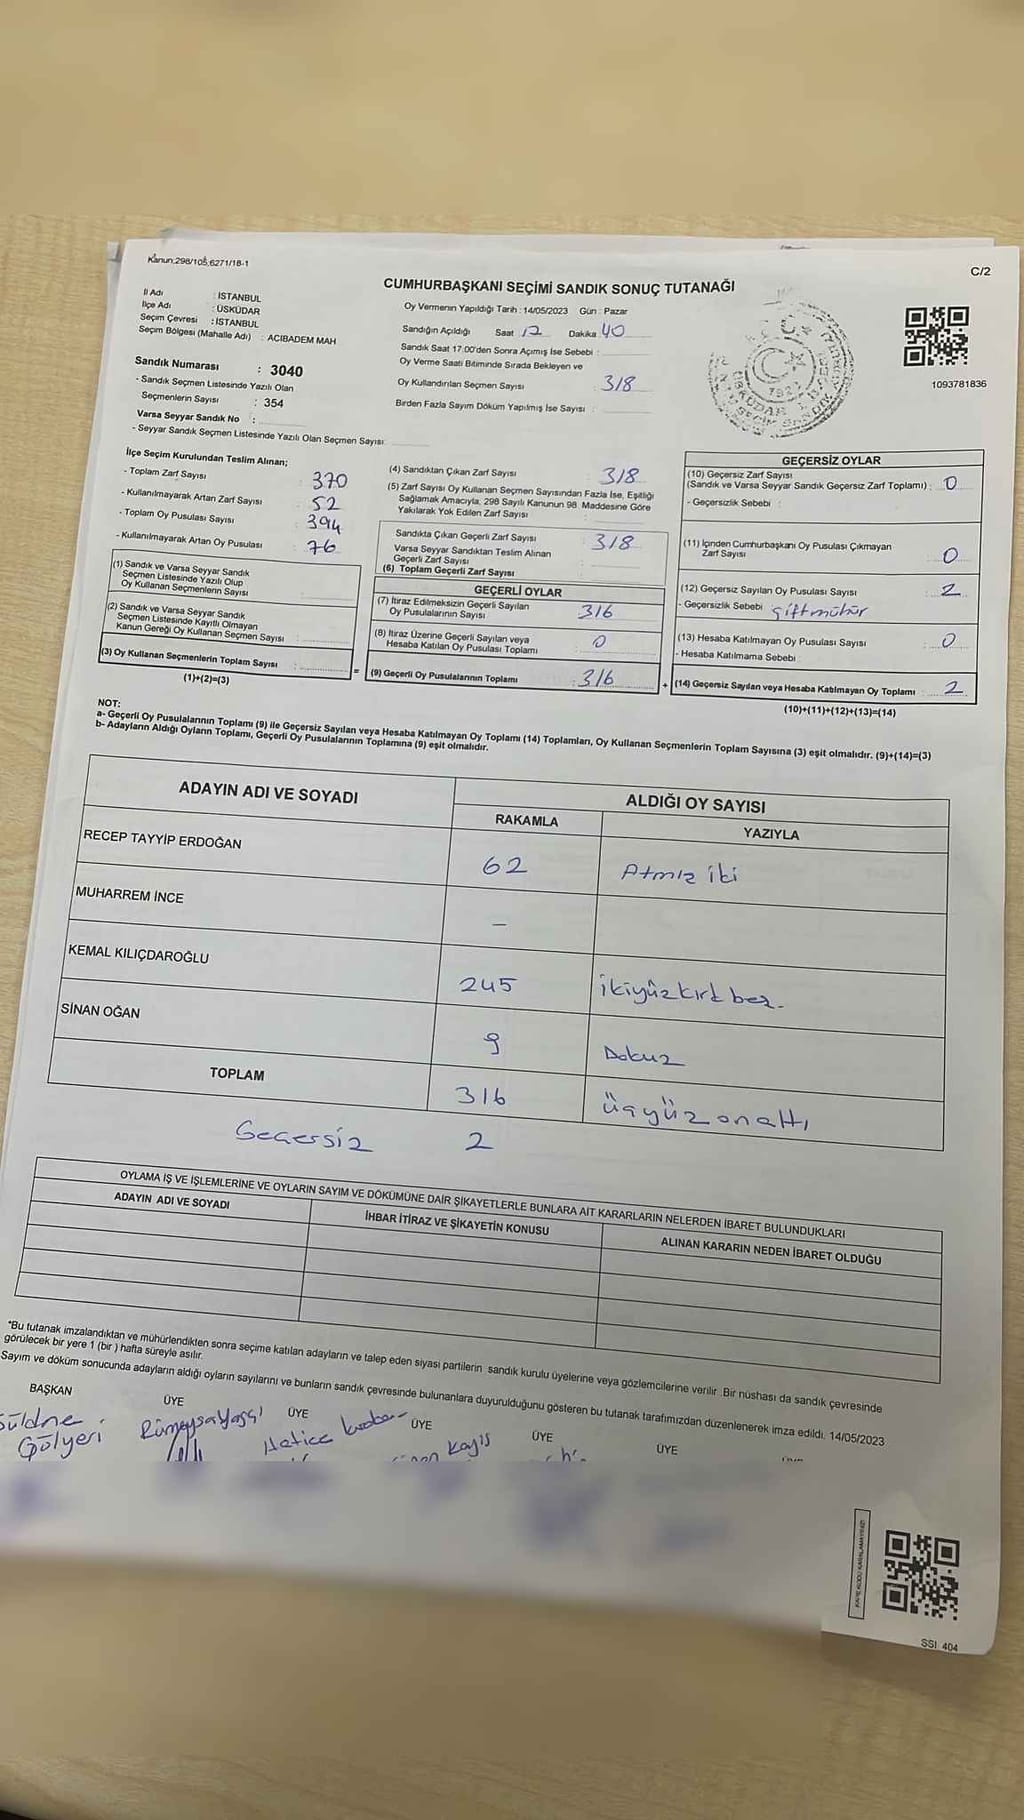 Kanun;298/105;6271/18-1
C/2
CUMHURBAŞKANI SEÇİMİ SANDIK SONUÇ TUTANAĞI
İl Adı : İSTANBUL
İlçe Adı : ÜSKÜDAR
Seçim Çevresi : İSTANBUL
Seçim Bölgesi (Mahalle Adı) : ACIBADEM MAH
Sandık Numarası : 3040
- Sandık Seçmen Listesinde Yazılı Olan
Seçmenlerin Sayısı : 354
Varsa Seyyar Sandık No :
- Seyyar Sandık Seçmen Listesinde Yazılı Olan Seçmen Sayısı:
Oy Vermenin Yapıldığı Tarih : 14/05/2023 Gün : Pazar
Sandığın Açıldığı Saat 17 Dakika 40
Sandık Saat 17.00'den Sonra Açımış İse Sebebi :
Oy Verme Saati Bitiminde Sırada Bekleyen ve
Oy Kullandırılan Seçmen Sayısı 318
Birden Fazla Sayım Döküm Yapılmış İse Sayısı :
1093781836
İlçe Seçim Kurulundan Teslim Alınan;
- Toplam Zarf Sayısı 370
- Kullanılmayarak Artan Zarf Sayısı 52
- Toplam Oy Pusulası Sayısı 394
- Kullanılmayarak Artan Oy Pusulası 76
(1) Sandık ve Varsa Seyyar Sandık
Seçmen Listesinde Yazılı Olup
Oy Kullanan Seçmenlerin Sayısı :
(2) Sandık ve Varsa Seyyar Sandık
Seçmen Listesinde Kayıtlı Olmayan
Kanun Gereği Oy Kullanan Seçmen Sayısı :
(3) Oy Kullanan Seçmenlerin Toplam Sayısı :
(1)+(2)=(3)
(4) Sandıktan Çıkan Zarf Sayısı 318
(5) Zarf Sayısı Oy Kullanan Seçmen Sayısından Fazla İse, Eşitliği
Sağlamak Amacıyla, 298 Sayılı Kanunun 98. Maddesine Göre
Yakılarak Yok Edilen Zarf Sayısı
Sandıkta Çıkan Geçerli Zarf Sayısı : 318
Varsa Seyyar Sandıktan Teslim Alınan
Geçerli Zarf Sayısı
(6) Toplam Geçerli Zarf Sayısı
GEÇERLİ OYLAR
(7) İtiraz Edilmeksizin Geçerli Sayılan
Oy Pusulalarının Sayısı : 316
(8) İtiraz Üzerine Geçerli Sayılan veya
Hesaba Katılan Oy Pusulası Toplamı : 0
= (9) Geçerli Oy Pusulalarının Toplamı : 316
GEÇERSİZ OYLAR
(10) Geçersiz Zarf Sayısı
(Sandık ve Varsa Seyyar Sandık Geçersiz Zarf Toplamı) : 0
- Geçersizlik Sebebi :
(11) İçinden Cumhurbaşkanı Oy Pusulası Çıkmayan
Zarf Sayısı 0
(12) Geçersiz Sayılan Oy Pusulası Sayısı : 2
- Geçersizlik Sebebi çift mühür
(13) Hesaba Katılmayan Oy Pusulası Sayısı : 0
- Hesaba Katılmama Sebebi
+ (14) Geçersiz Sayılan veya Hesaba Katılmayan Oy Toplamı : 2
(10)+(11)+(12)+(13)=(14)
NOT:
a- Geçerli Oy Pusulalarının Toplamı (9) ile Geçersiz Sayılan veya Hesaba Katılmayan Oy Toplamı (14) Toplamları, Oy Kullanan Seçmenlerin Toplam Sayısına (3) eşit olmalıdır. (9)+(14)=(3)
b- Adayların Aldığı Oyların Toplamı, Geçerli Oy Pusulalarının Toplamına (9) eşit olmalıdır.
ADAYIN ADI VE SOYADI ALDIĞI OY SAYISI
RAKAMLA YAZIYLA
RECEP TAYYİP ERDOĞAN 62 Atmış iki
MUHARREM İNCE -
KEMAL KILIÇDAROĞLU 245 ikiyüzkırk beş.
SİNAN OĞAN 9 Dokuz
TOPLAM 316 üçyüz onaltı
Geçersiz 2
OYLAMA İŞ VE İŞLEMLERİNE VE OYLARIN SAYIM VE DÖKÜMÜNE DAİR ŞİKAYETLERLE BUNLARA AİT KARARLARIN NELERDEN İBARET BULUNDUKLARI
ADAYIN ADI VE SOYADI İHBAR İTİRAZ VE ŞİKAYETİN KONUSU ALINAN KARARIN NEDEN İBARET OLDUĞU
*Bu tutanak imzalandıktan ve mühürlendikten sonra seçime katılan adayların ve talep eden siyasi partilerin sandık kurulu üyelerine veya gözlemcilerine verilir .Bir nüshası da sandık çevresinde
görülecek bir yere 1 (bir ) hafta süreyle asılır.
Sayım ve döküm sonucunda adayların aldığı oyların sayılarını ve bunların sandık çevresinde bulunanlara duyurulduğunu gösteren bu tutanak tarafımızdan düzenlenerek imza edildi. 14/05/2023
BAŞKAN ÜYE ÜYE ÜYE ÜYE ÜYE
Gülyeri Hatice Kayış
SSI 404